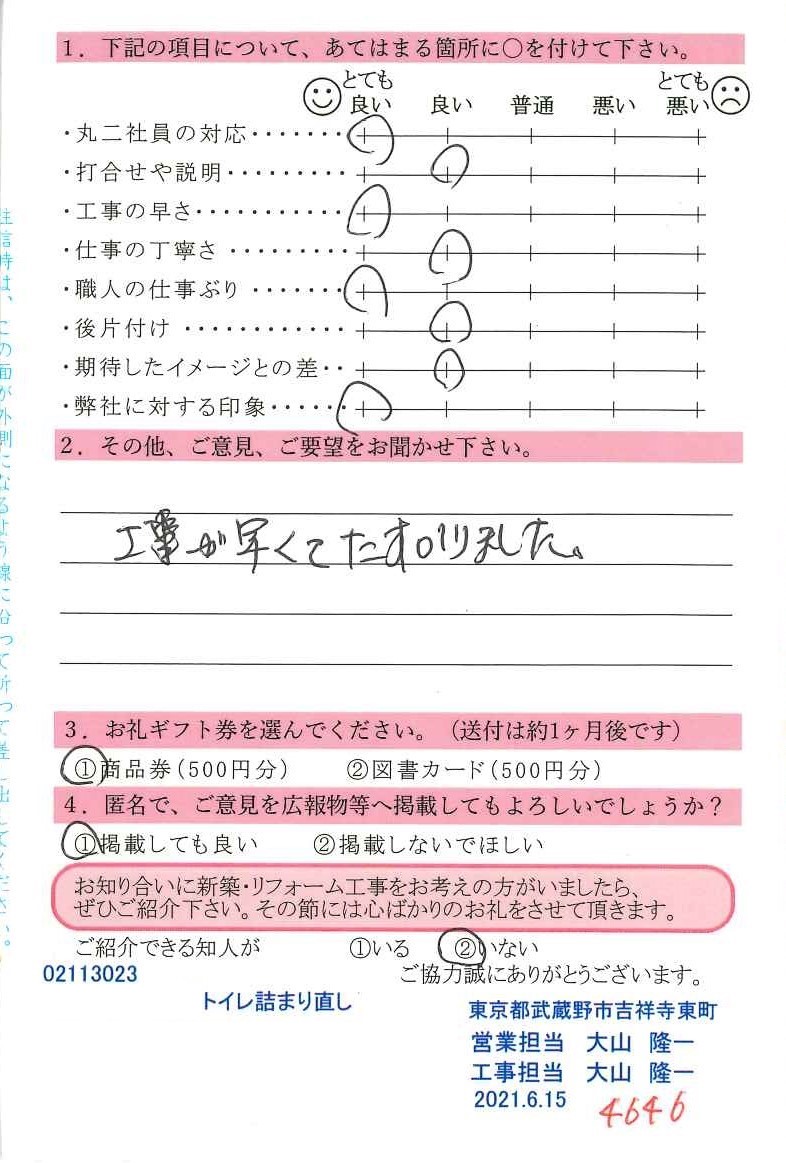 1．下記の項目について、あてはまる箇所に○を付けて下さい。
とても良い 良い 普通 悪い とても悪い
・丸二社員の対応・・・・・・・
・打合せや説明・・・・・・・・・
・工事の早さ・・・・・・・・・・・
・仕事の丁寧さ・・・・・・・・・
・職人の仕事ぶり・・・・・・・
・後片付け・・・・・・・・・・・・
・期待したイメージとの差・・
・弊社に対する印象・・・・・・
2．その他、ご意見、ご要望をお聞かせ下さい。
工事が早くてたすかりました。
3．お礼ギフト券を選んでください。（送付は約1ヶ月後です）
①商品券（500円分） ②図書カード（500円分）
4．匿名で、ご意見を広報物等へ掲載してもよろしいでしょうか？
①掲載しても良い ②掲載しないでほしい
お知り合いに新築・リフォーム工事をお考えの方がいましたら、
ぜひご紹介下さい。その節には心ばかりのお礼をさせて頂きます。
ご紹介できる知人が ①いる ②いない
02113023 ご協力誠にありがとうございます。
トイレ詰まり直し
東京都武蔵野市吉祥寺東町
営業担当 大山 隆一
工事担当 大山 隆一
2021.6.15
4646